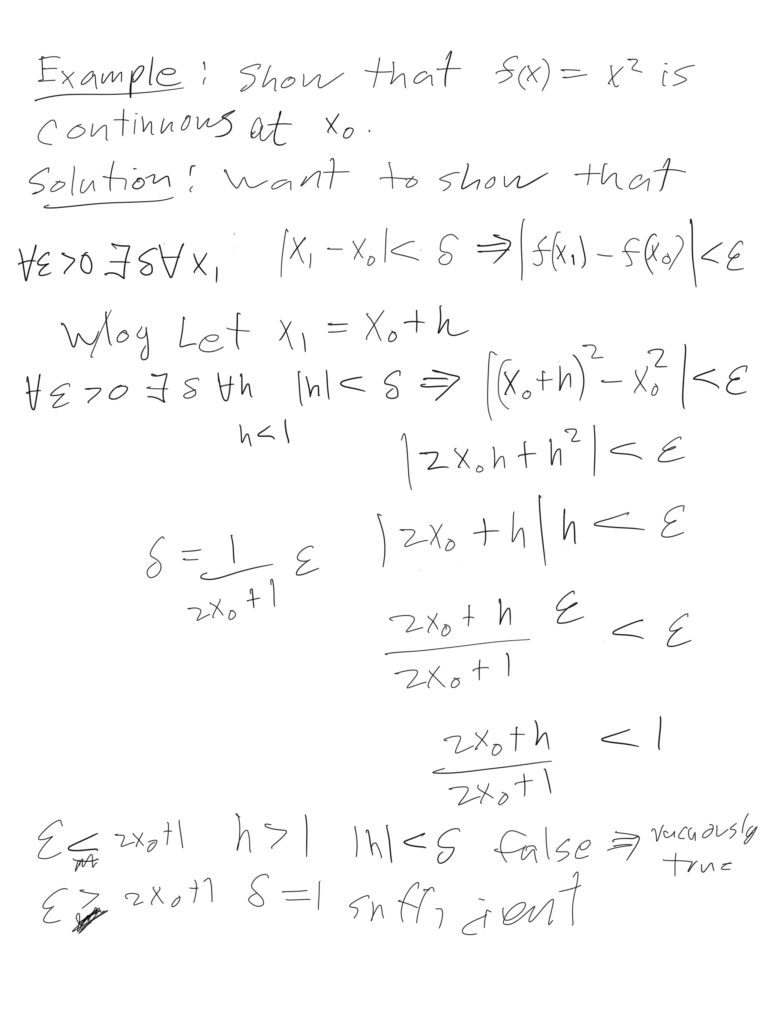 Example: Show that f(x) = x² is
continuous at x₀.
Solution: want to show that
∀ε>0 ∃δ∀x₁ |x₁-x₀|< δ ⇒|f(x₁)-f(x₀)|<ε
Wlog Let x₁ = x₀+h
∀ε>0 ∃δ ∀h |h|< δ ⇒ |(x₀+h)²-x₀²|<ε
h<1
|2x₀h+h²|< ε
|2x₀+h|h< ε
δ = 1/(2x₀+1) ε
(2x₀+h)/(2x₀+1) ε < ε
(2x₀+h)/(2x₀+1) < 1
ε ≤ 2x₀+1 h>1 |h|<δ false ⇒ vacuously true
ε ≥ 2x₀+1 δ=1 sufficient